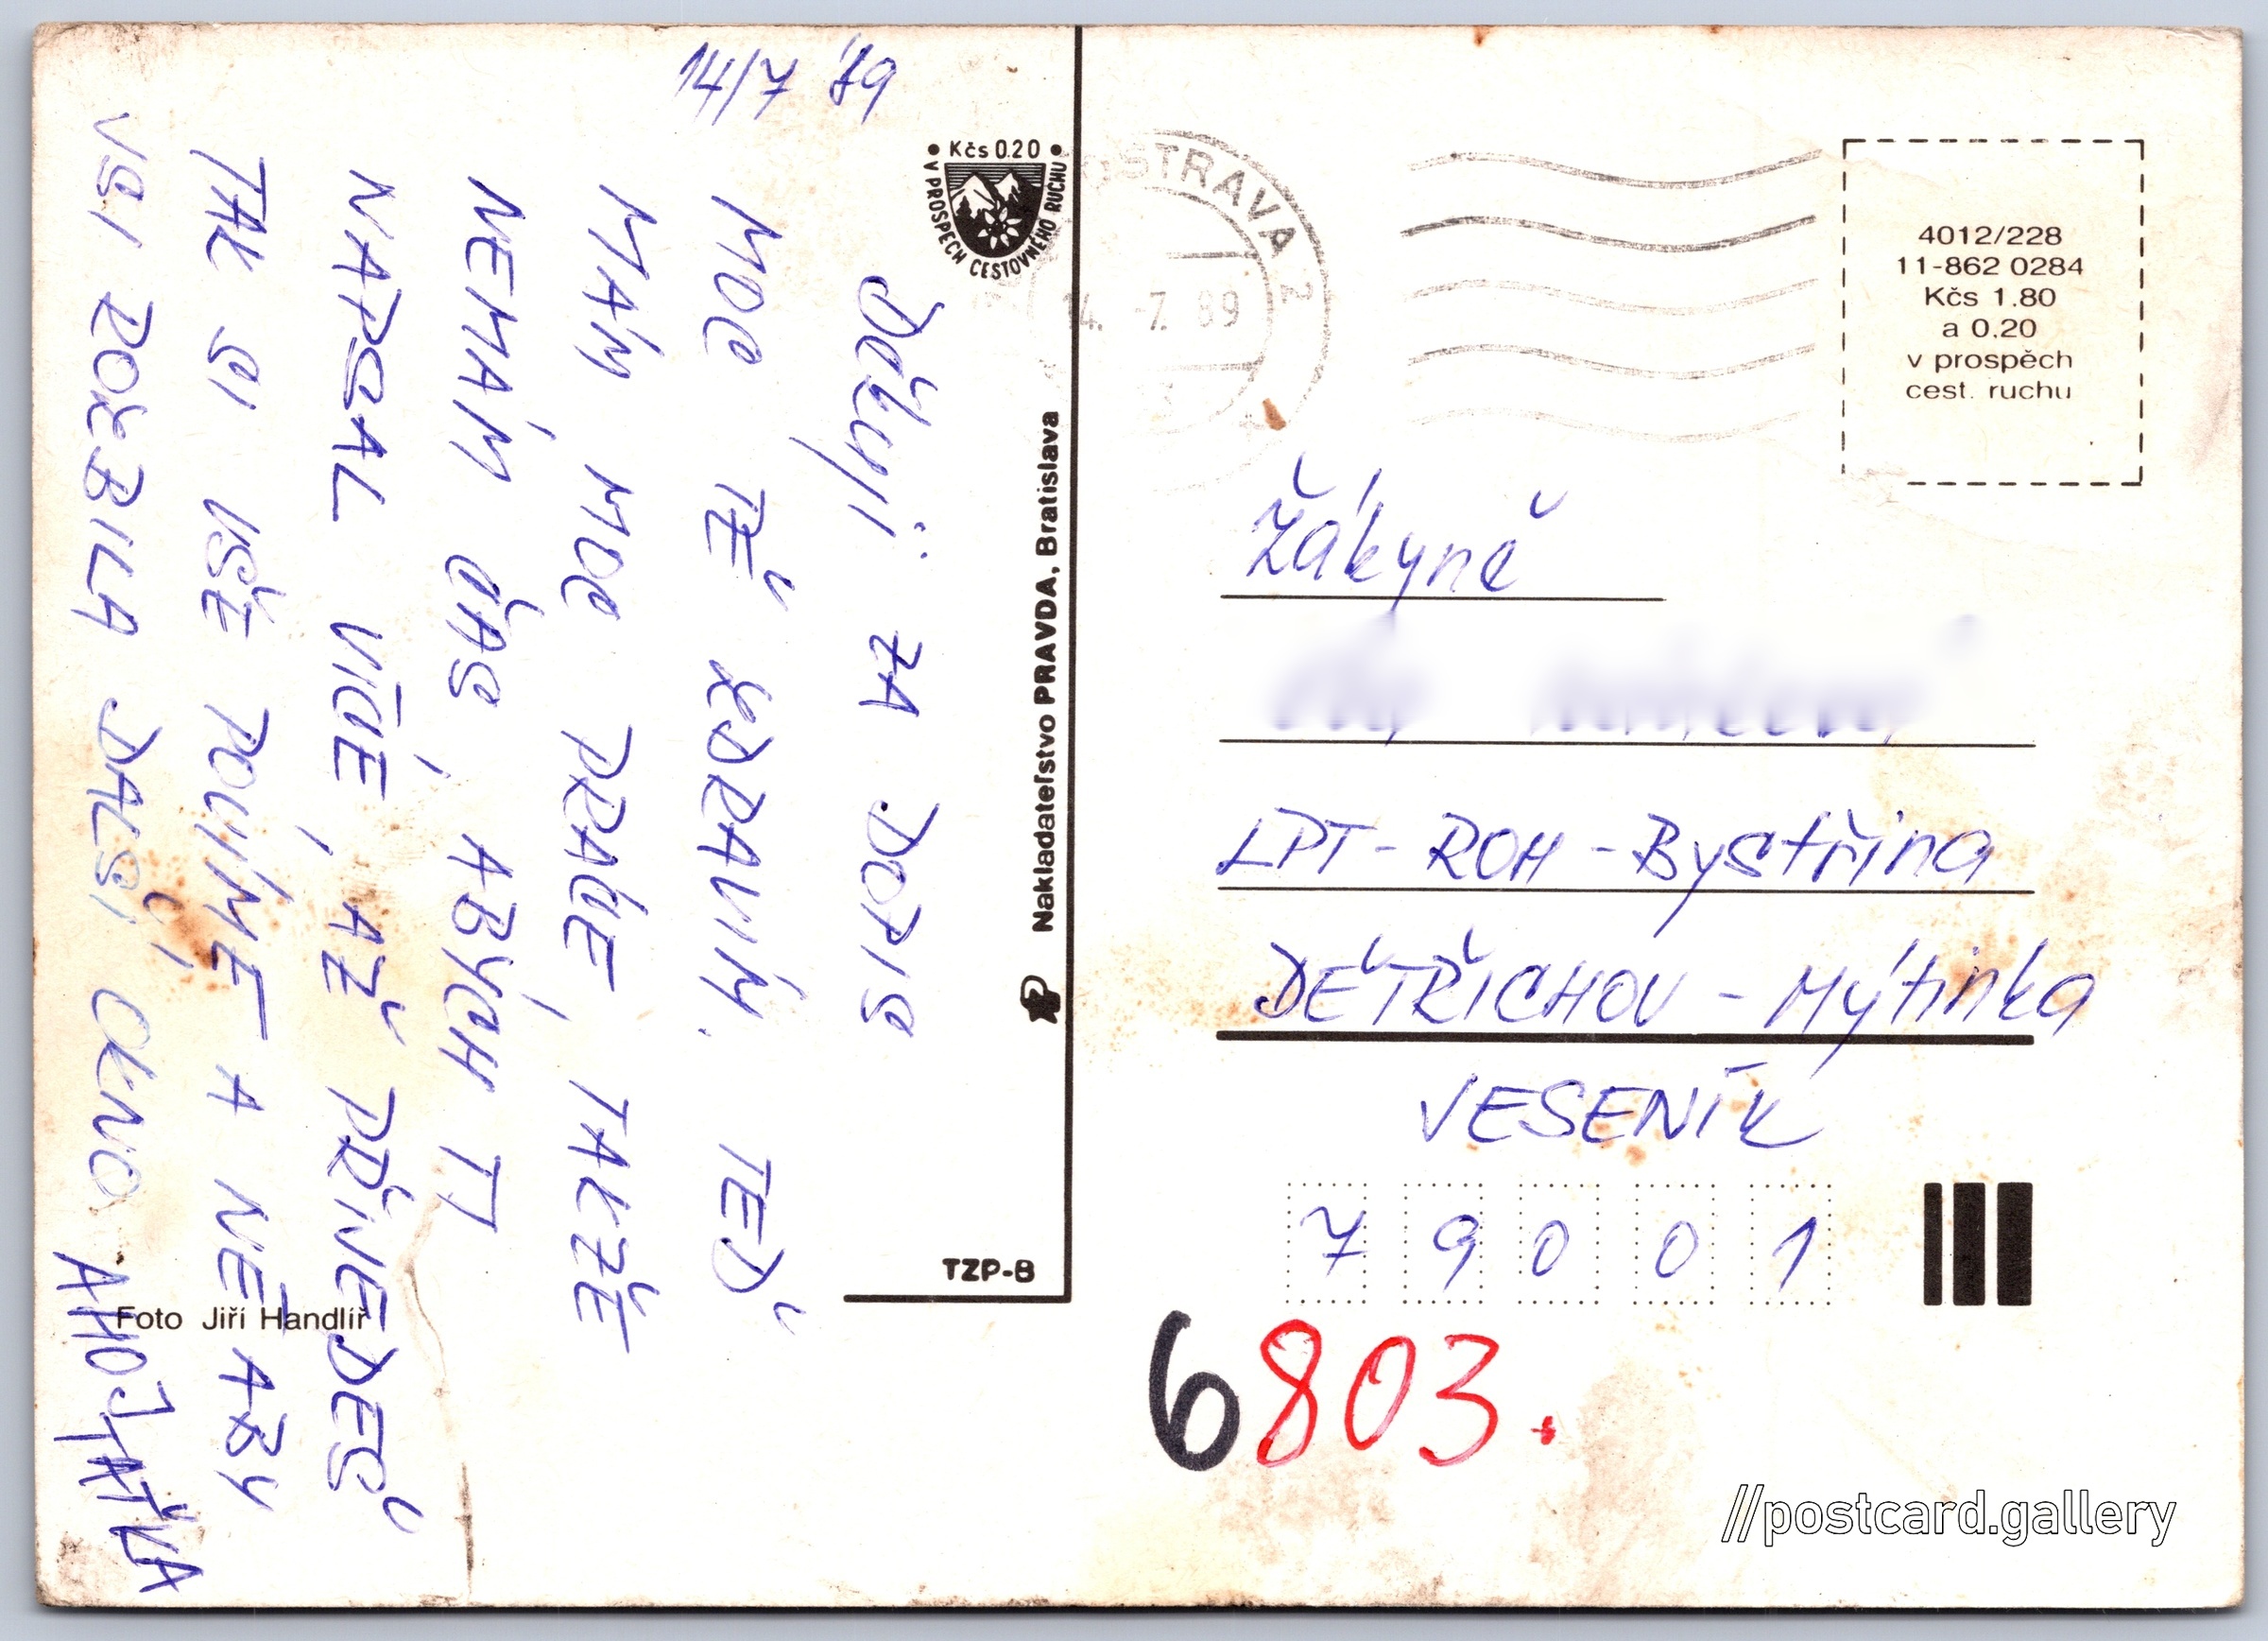 14/7 '89
Děkuji ZA DOPIS
MOC TĚ ZDRAVÍM. TEĎ
MÁM MOC PRÁCE, TAKŽE
NEMÁM ČAS, ABYCH TI
NAPSAL VÍCE, AŽ PŘIJEDEŠ
TAK SI VŠE POVÍME A NE ABY
SI ROZBILA DALŠÍ OKNO AHOJ TAŤKA
Kčs 0.20
V PROSPĚCH CESTOVNÉHO RUCHU
Nakladateľstvo PRAVDA, Bratislava
TZP-B
Foto Jiří Handlíř
OSTRAVA 2
14. -7. 89
4012/228
11-862 0284
Kčs 1.80
a 0.20
v prospěch
cest. ruchu
Žákyně
LPT - ROH - Bystřina
DĚTŘICHOV - Mýtinka
JESENÍK
79001
6803.
//postcard.gallery